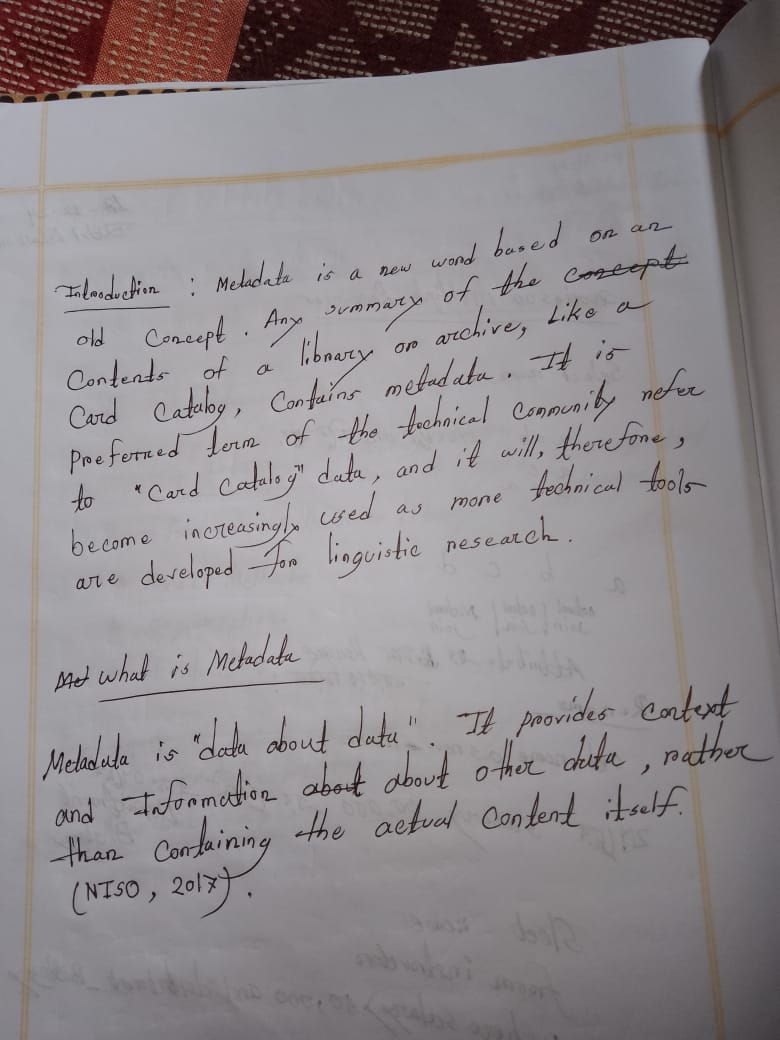 Introduction : Metadata is a new word based on an
old Concept. Any summary of the concept
Contents of a library or archive, Like a
Card Catalog, Contains metadata. It is
Preferred term of the technical Community refer
to "Card Catalog" data, and it will, therefore,
become increasingly used as more technical tools
are developed for linguistic research.
Met What is Metadata
Metadata is "data about data". It provides Context
and Information about about other data, rather
than Containing the actual Content itself.
(NISO, 2017).